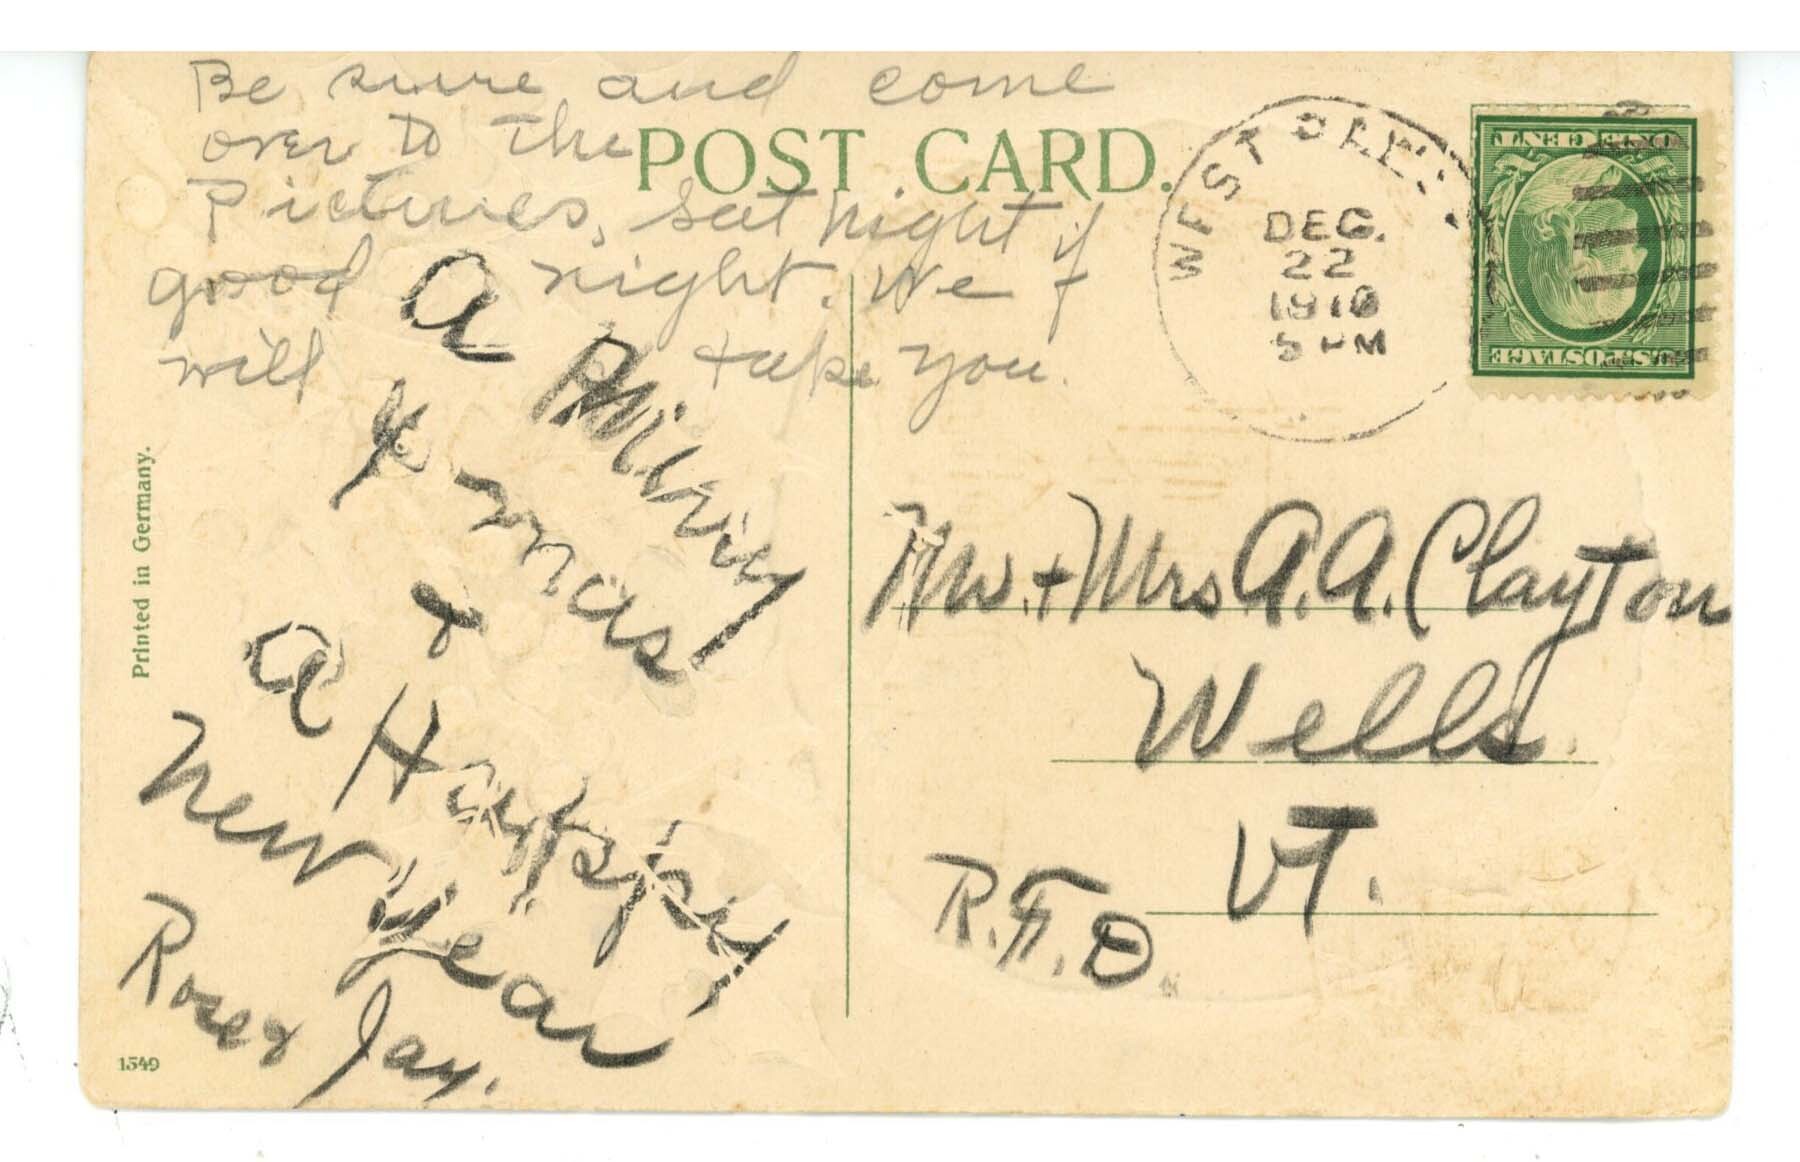 Be sure and come
over to the
pictures, sat night if
good night. We
will take you.
POST CARD.
WEST PAWLET
DEC.
22
1910
5 PM
ONE CENT
U.S. POSTAGE
A Merry
Xmas
&
A Happy
New Year
Rose & Jay.
Mr. + Mrs A. A. Clayton
Wells
VT.
R.F.D.
Printed in Germany.
1549